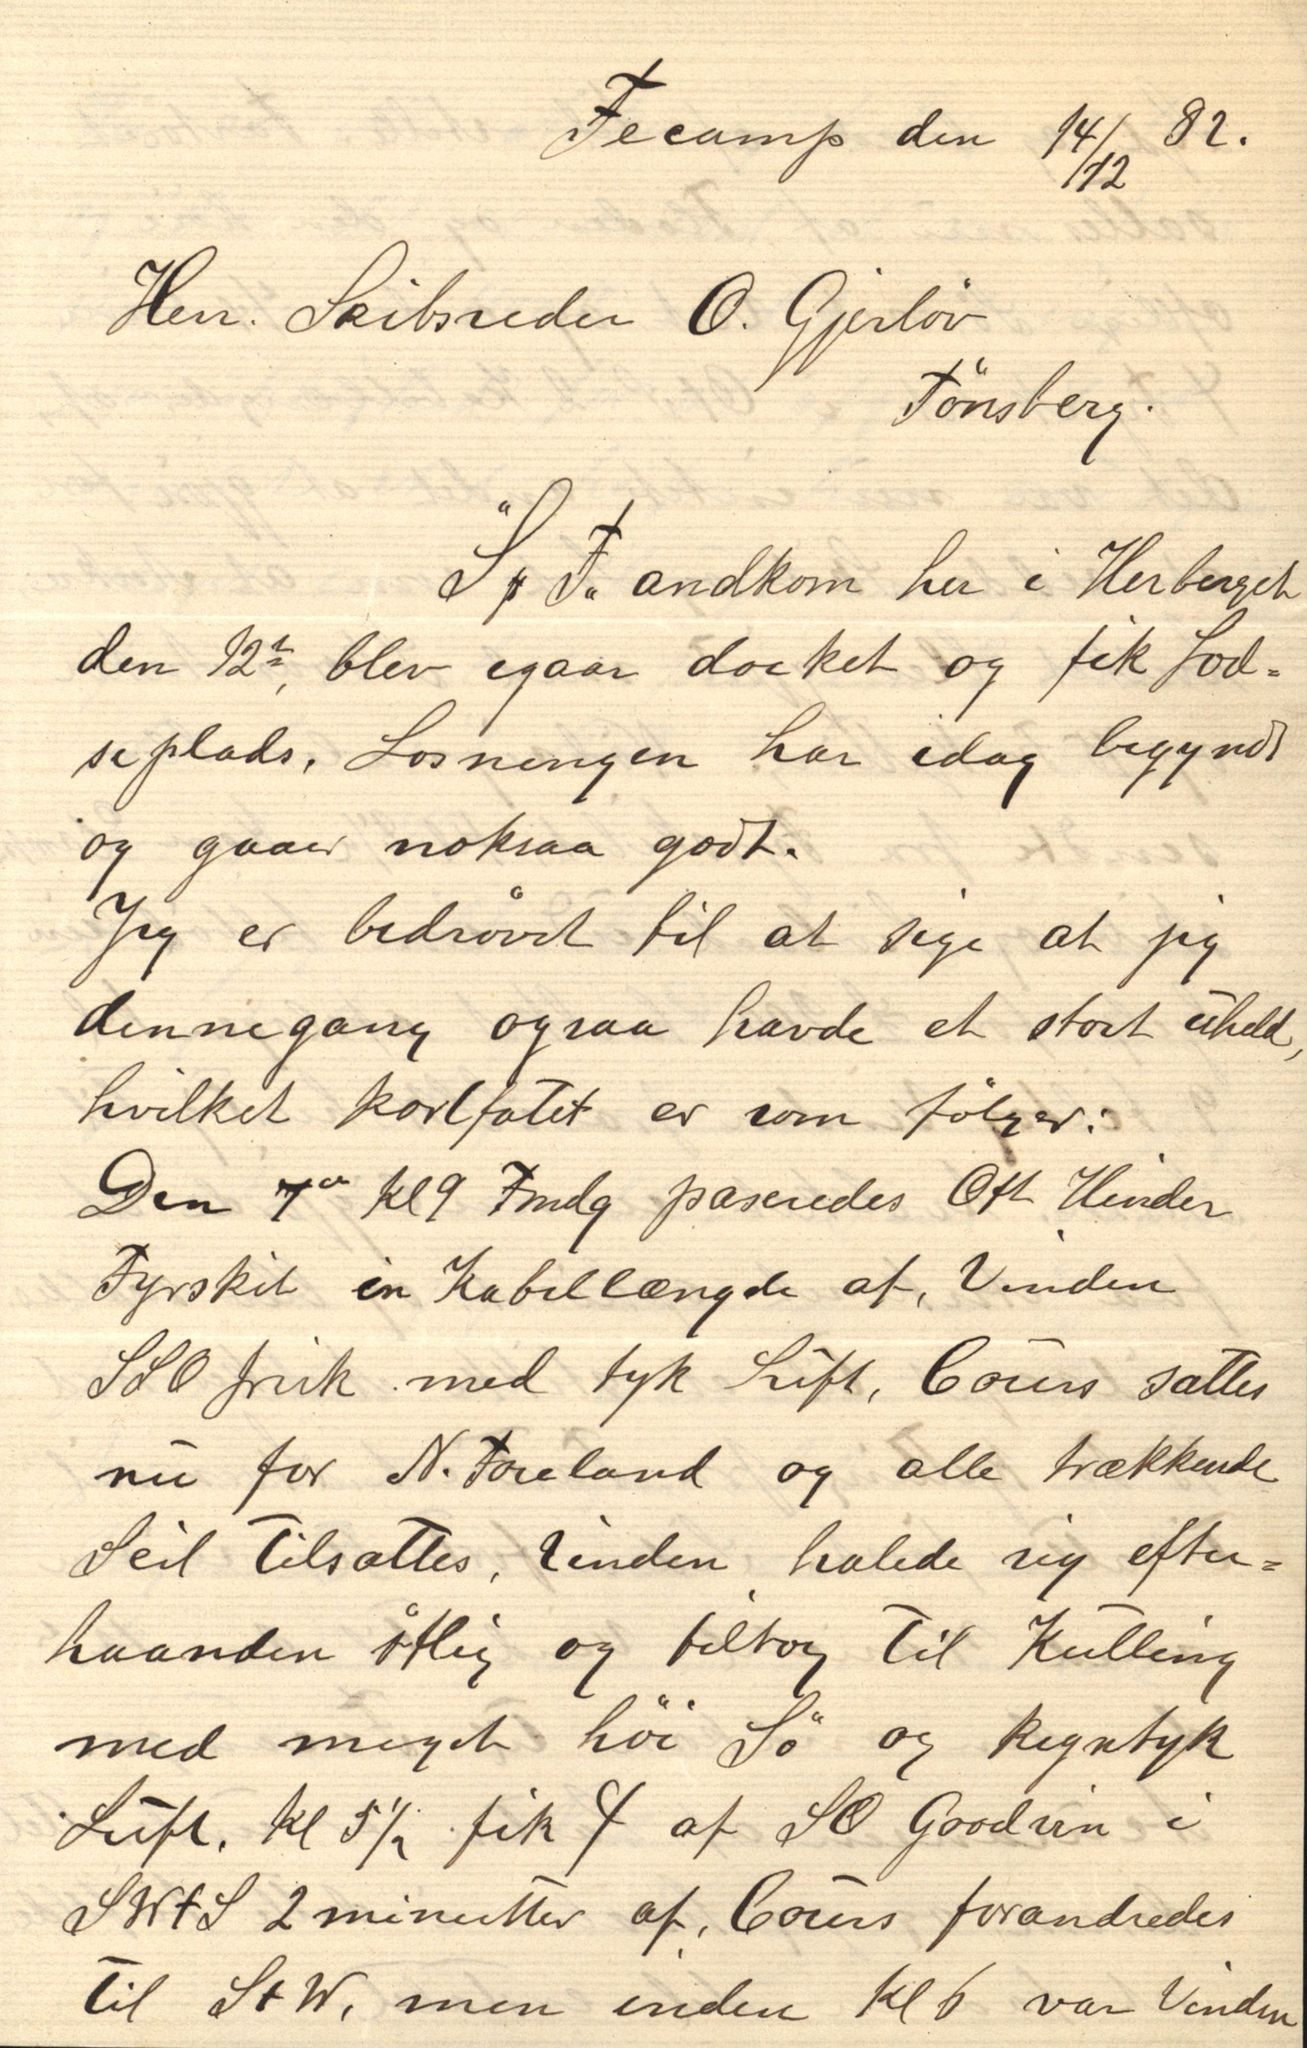 Fecamp den 14/12 82.
Herr. Skibsreder O. Gjerløv
Tönsberg.
S. p. T. andkom her i Herberget
den 12te, blev igaar docket og fik Lod=
seplads. Losningen har idag begyndt
og gaaer noksaa godt.
Jeg er bedrövet til at sige at jeg
dennegang ogsaa havde et stort uheld,
hvilket kortfatet er som fölger:
Den 7de Kl 9 Fmdg paseredes Oft Hinder
Fyrskib en Kabellængde af, Vinden
SSO frisk med tyk Luft, Cours sattes
nu for N. Foreland og alle trækkende
Seil tilsattes, Vinden halede sig efter=
haanden östlig og tiltog til Kulling
med meget höi Sö og Regntyk
Luft. Kl 5½ fik af SO Goodvin i
SWtS 2 minutter af, Cours forandredes
til StW, men inden Kl 6 var Vinden